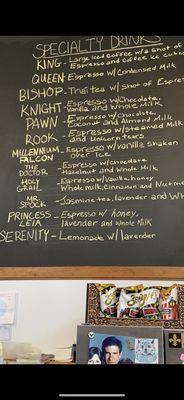 SPECIALTY DRINKS
KING - Large Iced Coffee w/a Shot of
Espresso and Coffee Ice Cubes
QUEEN - Espresso w/Condensed Milk
BISHOP - Thai tea w/ Shot of Espresso
KNIGHT - Espresso w/Chocolate,
Vanilla and Whole Milk
PAWN - Espresso w/Chocolate,
Coconut and Almond Milk
ROOK - Espresso w/Steamed Milk
and Unicorn tears
MILLENNIUM FALCON - Espresso w/Vanilla Shaken
over Ice
THE DOCTOR - Espresso w/chocolate
Hazelnut and Whole Milk
HOLY GRAIL - Espresso w/Vanilla, honey
Whole milk, Cinnamon and Nutmeg
MR. SPOCK - Jasmine tea, lavender and Wh
PRINCESS LEIA - Espresso w/ honey,
lavender and whole Milk
SERENITY - Lemonade w/lavender